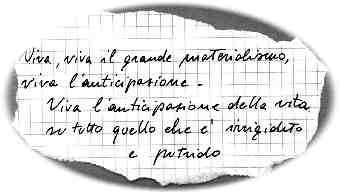 Viva, viva il grande materialismo,
viva l'anticipazione -
Viva l'anticipazione della vita
su tutto quello che è irrigidito
e putrido